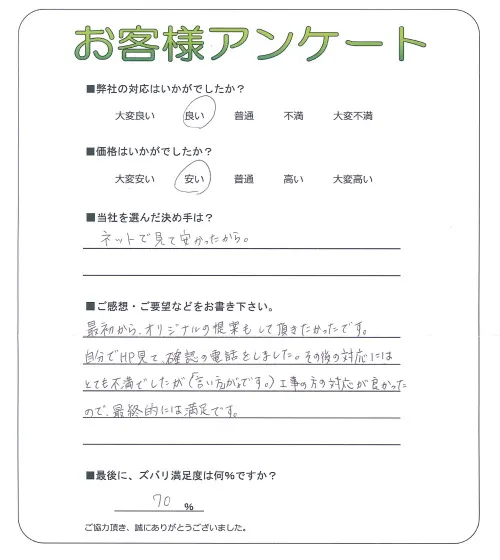 お客様アンケート
■弊社の対応はいかがでしたか？
大変良い 良い 普通 不満 大変不満
■価格はいかがでしたか？
大変安い 安い 普通 高い 大変高い
■当社を選んだ決め手は？
ネットで見て安かったから。
■ご感想・ご要望などをお書き下さい。
最初から、オリジナルの提案もして頂きたかったです。
自分でHP見て、確認の電話をしました。その後の対応には
とても不満でしたが(言い方がるです。)工事の方の対応が良かった
ので、最終的には満足です。
■最後に、ズバリ満足度は何％ですか？
70 ％
ご協力頂き、誠にありがとうございました。